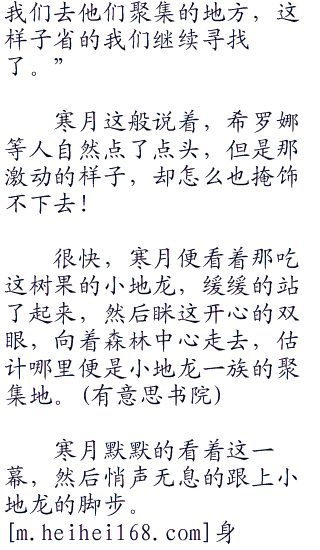 我们去他们聚集的地方，这
样子省的我们继续寻找
了。”
寒月这般说着，希罗娜
等人自然点了点头，但是那
激动的样子，却怎么也掩饰
不下去！
很快，寒月便看着那吃
这树果的小地龙，缓缓的站
了起来，然后眯这开心的双
眼，向着森林中心走去，估
计哪里便是小地龙一族的聚
集地。（有意思书院）
寒月默默的看着这一
幕，然后悄声无息的跟上小
地龙的脚步。
[m.heihei168.com]身